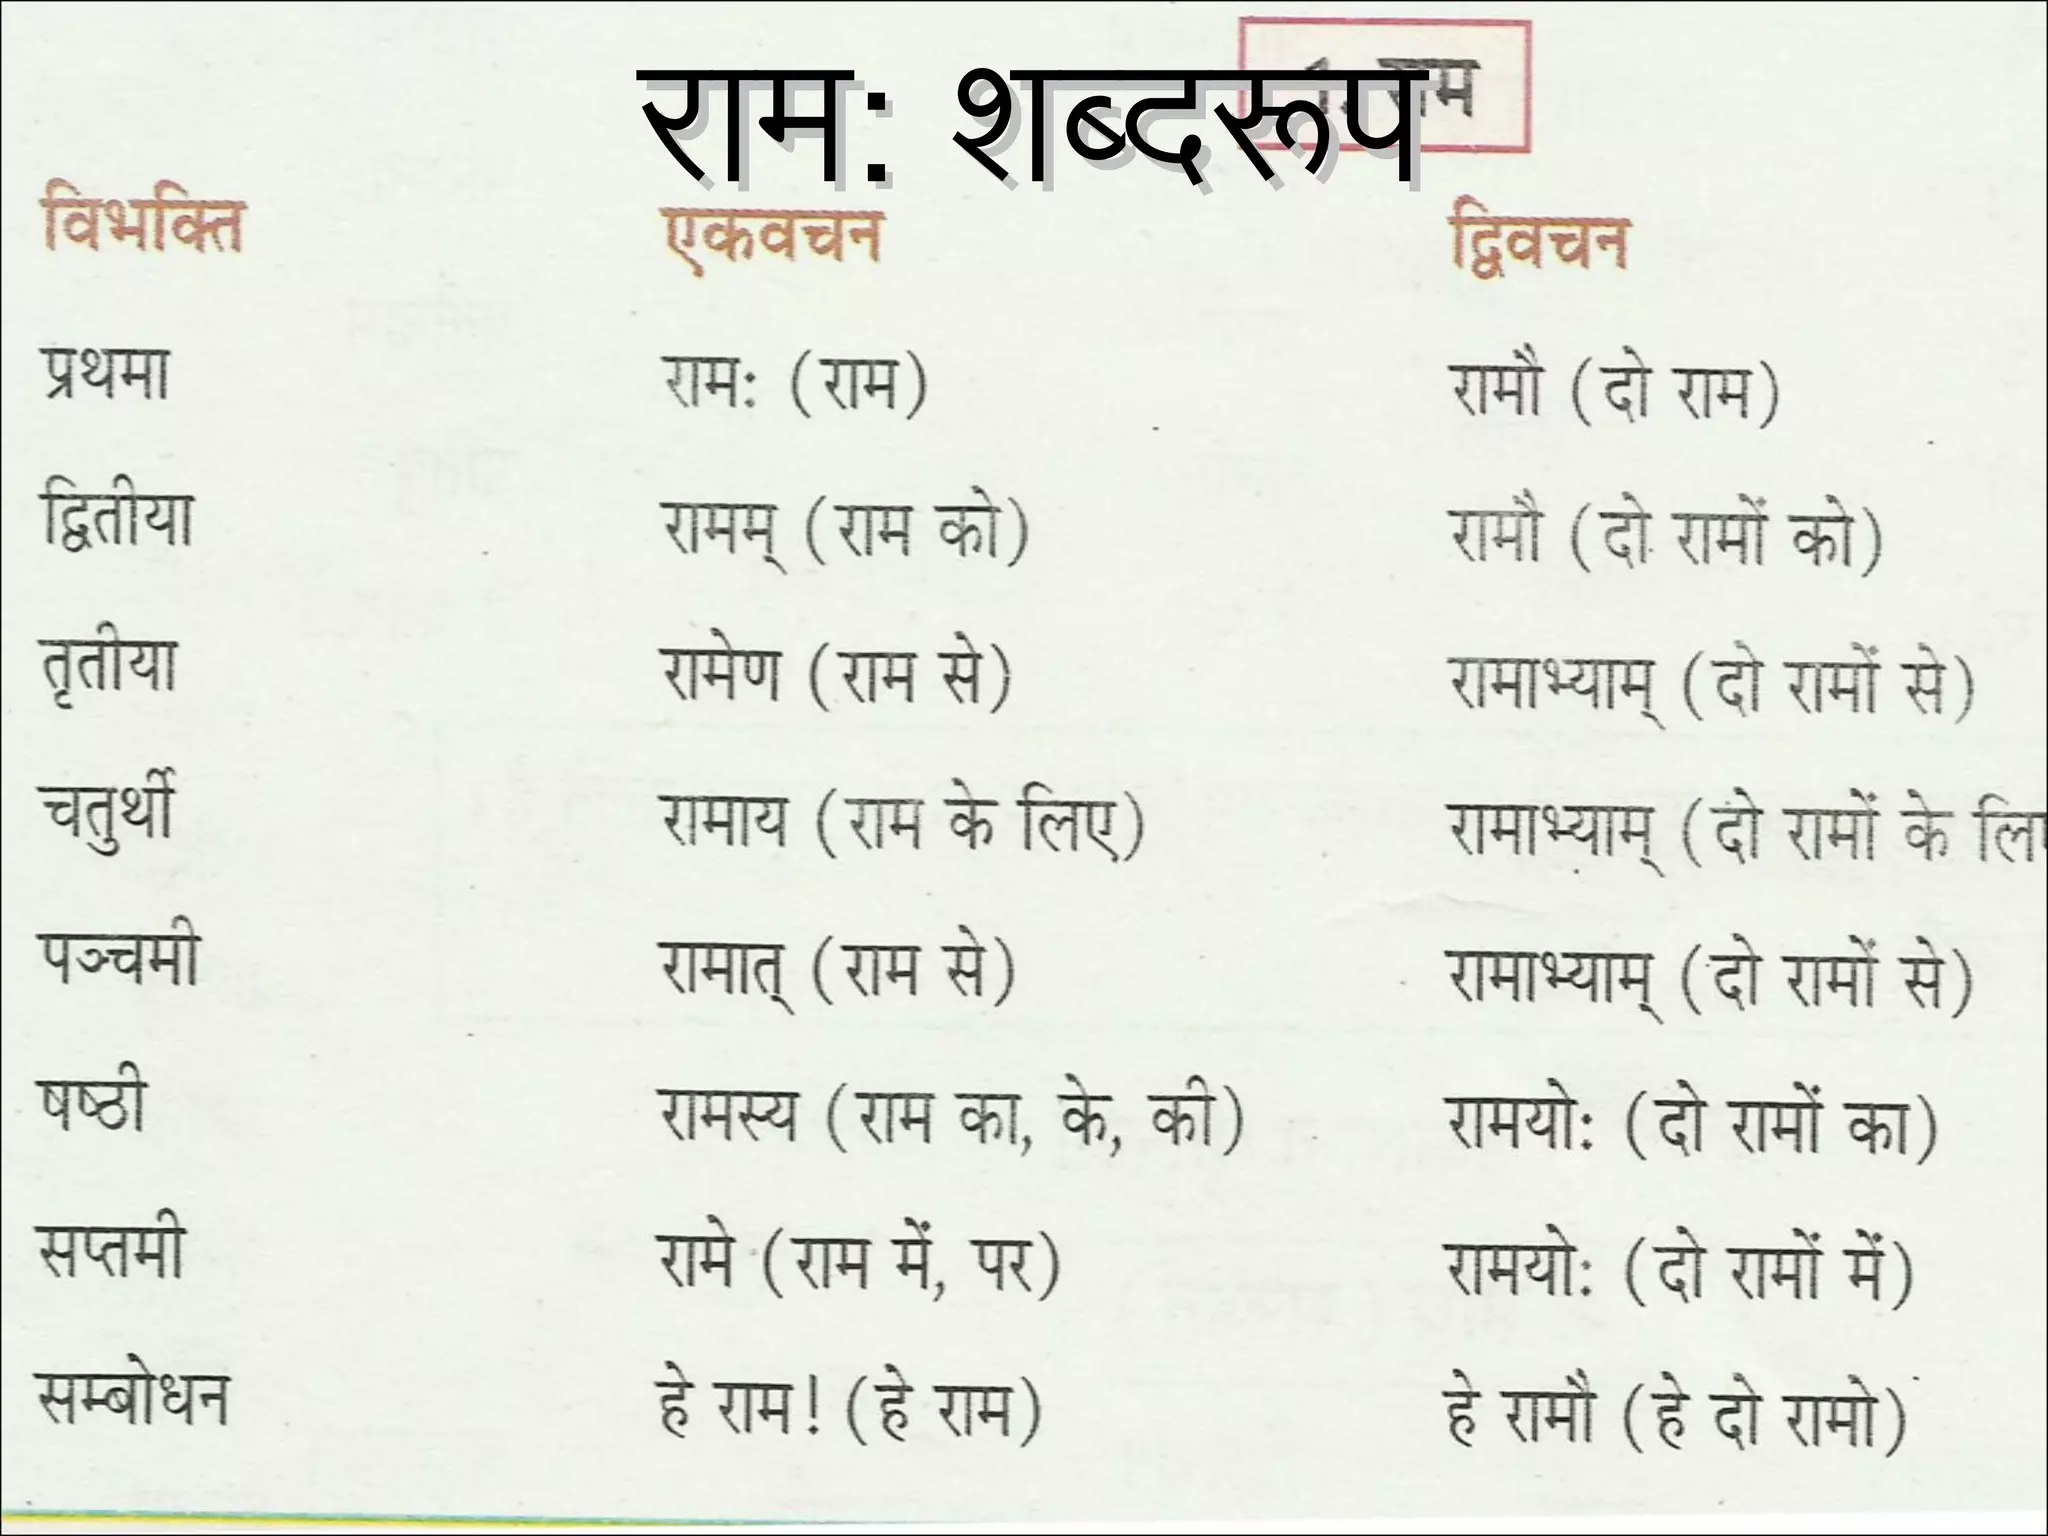 रामः शब्दरूप
राम
विभक्ति एकवचन द्विवचन
प्रथमा रामः (राम) रामौ (दो राम)
द्वितीया रामम् (राम को) रामौ (दो रामों को)
तृतीया रामेण (राम से) रामाभ्याम् (दो रामों से)
चतुर्थी रामाय (राम के लिए) रामाभ्याम् (दो रामों के
पञ्चमी रामात् (राम से) रामाभ्याम् (दो रामों से)
षष्ठी रामस्य (राम का, के, की) रामयोः (दो रामों का)
सप्तमी रामे (राम में, पर) रामयोः (दो रामों में)
सम्बोधन हे राम! (हे राम) हे रामौ (हे दो रामो)